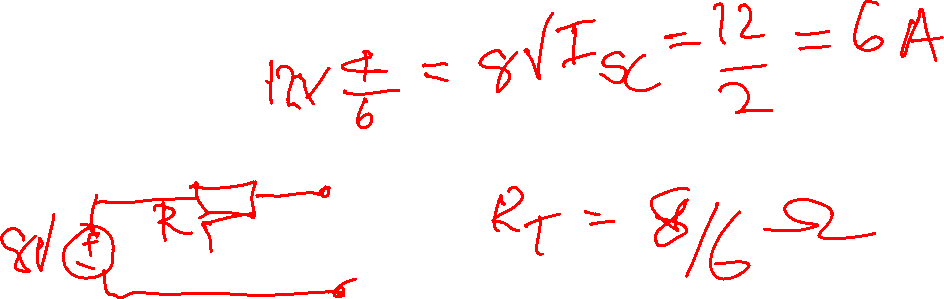 12× 4/6 = 8V I_SC = 12/2 = 6 A
8V R_T
R_T = 8/6 Ω